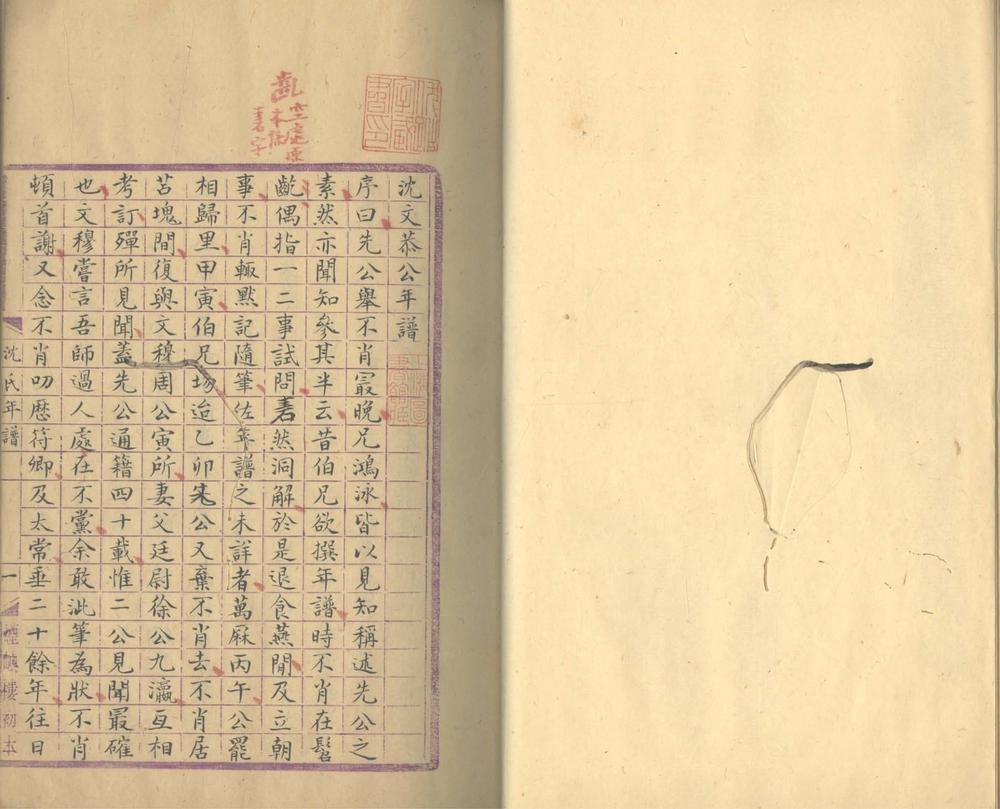 沈文恭公年譜
序曰先公舉不肖㝡晚兄鴻泳皆以見知稱述先公之
素然亦聞知參其半云昔伯兄欲撰年譜時不肖在髫
齔偶指一二事試問砉然洞解於是退食燕閒及立朝
事不肖輙黙記隨筆佐年譜之未詳者萬厤丙午公罷
相歸里甲寅伯兄塲迨乙卯先公又棄不肖去不肖居
苫塊間復與文穆周公寅所妻父廷尉徐公九瀛互相
考訂殫所見聞蓋先公通籍四十載惟二公見聞最確
也文穆嘗言吾師過人處在不黨余敢泚筆為狀不肖
頓首謝又念不肖叨歷符卿及太常垂二十餘年往日
沈氏年譜
一
樓初本
砉字